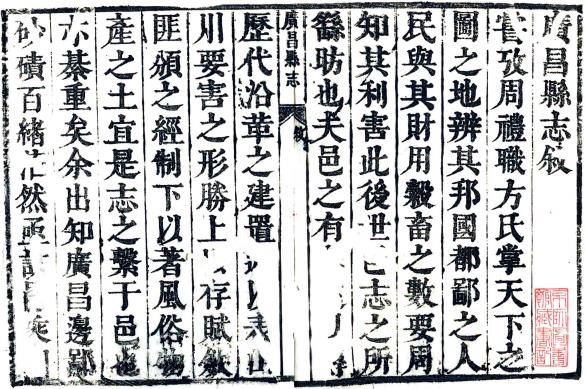 廣昌縣志敘
嘗攷周禮職方氏掌天下之
圖之地辨其邦國都鄙之人
民與其財用穀畜之數要周
知其利害此後世邑志之所
繇昉也夫邑之有
廣昌縣志
敘
歷代沿革之建置
川要害之形勝上 存賦斂
匪頒之經制下以著風俗物
產之土宜是志之繫于邑也
亦綦重矣余出知廣昌邊鄙
砂磧百緒茫然亟